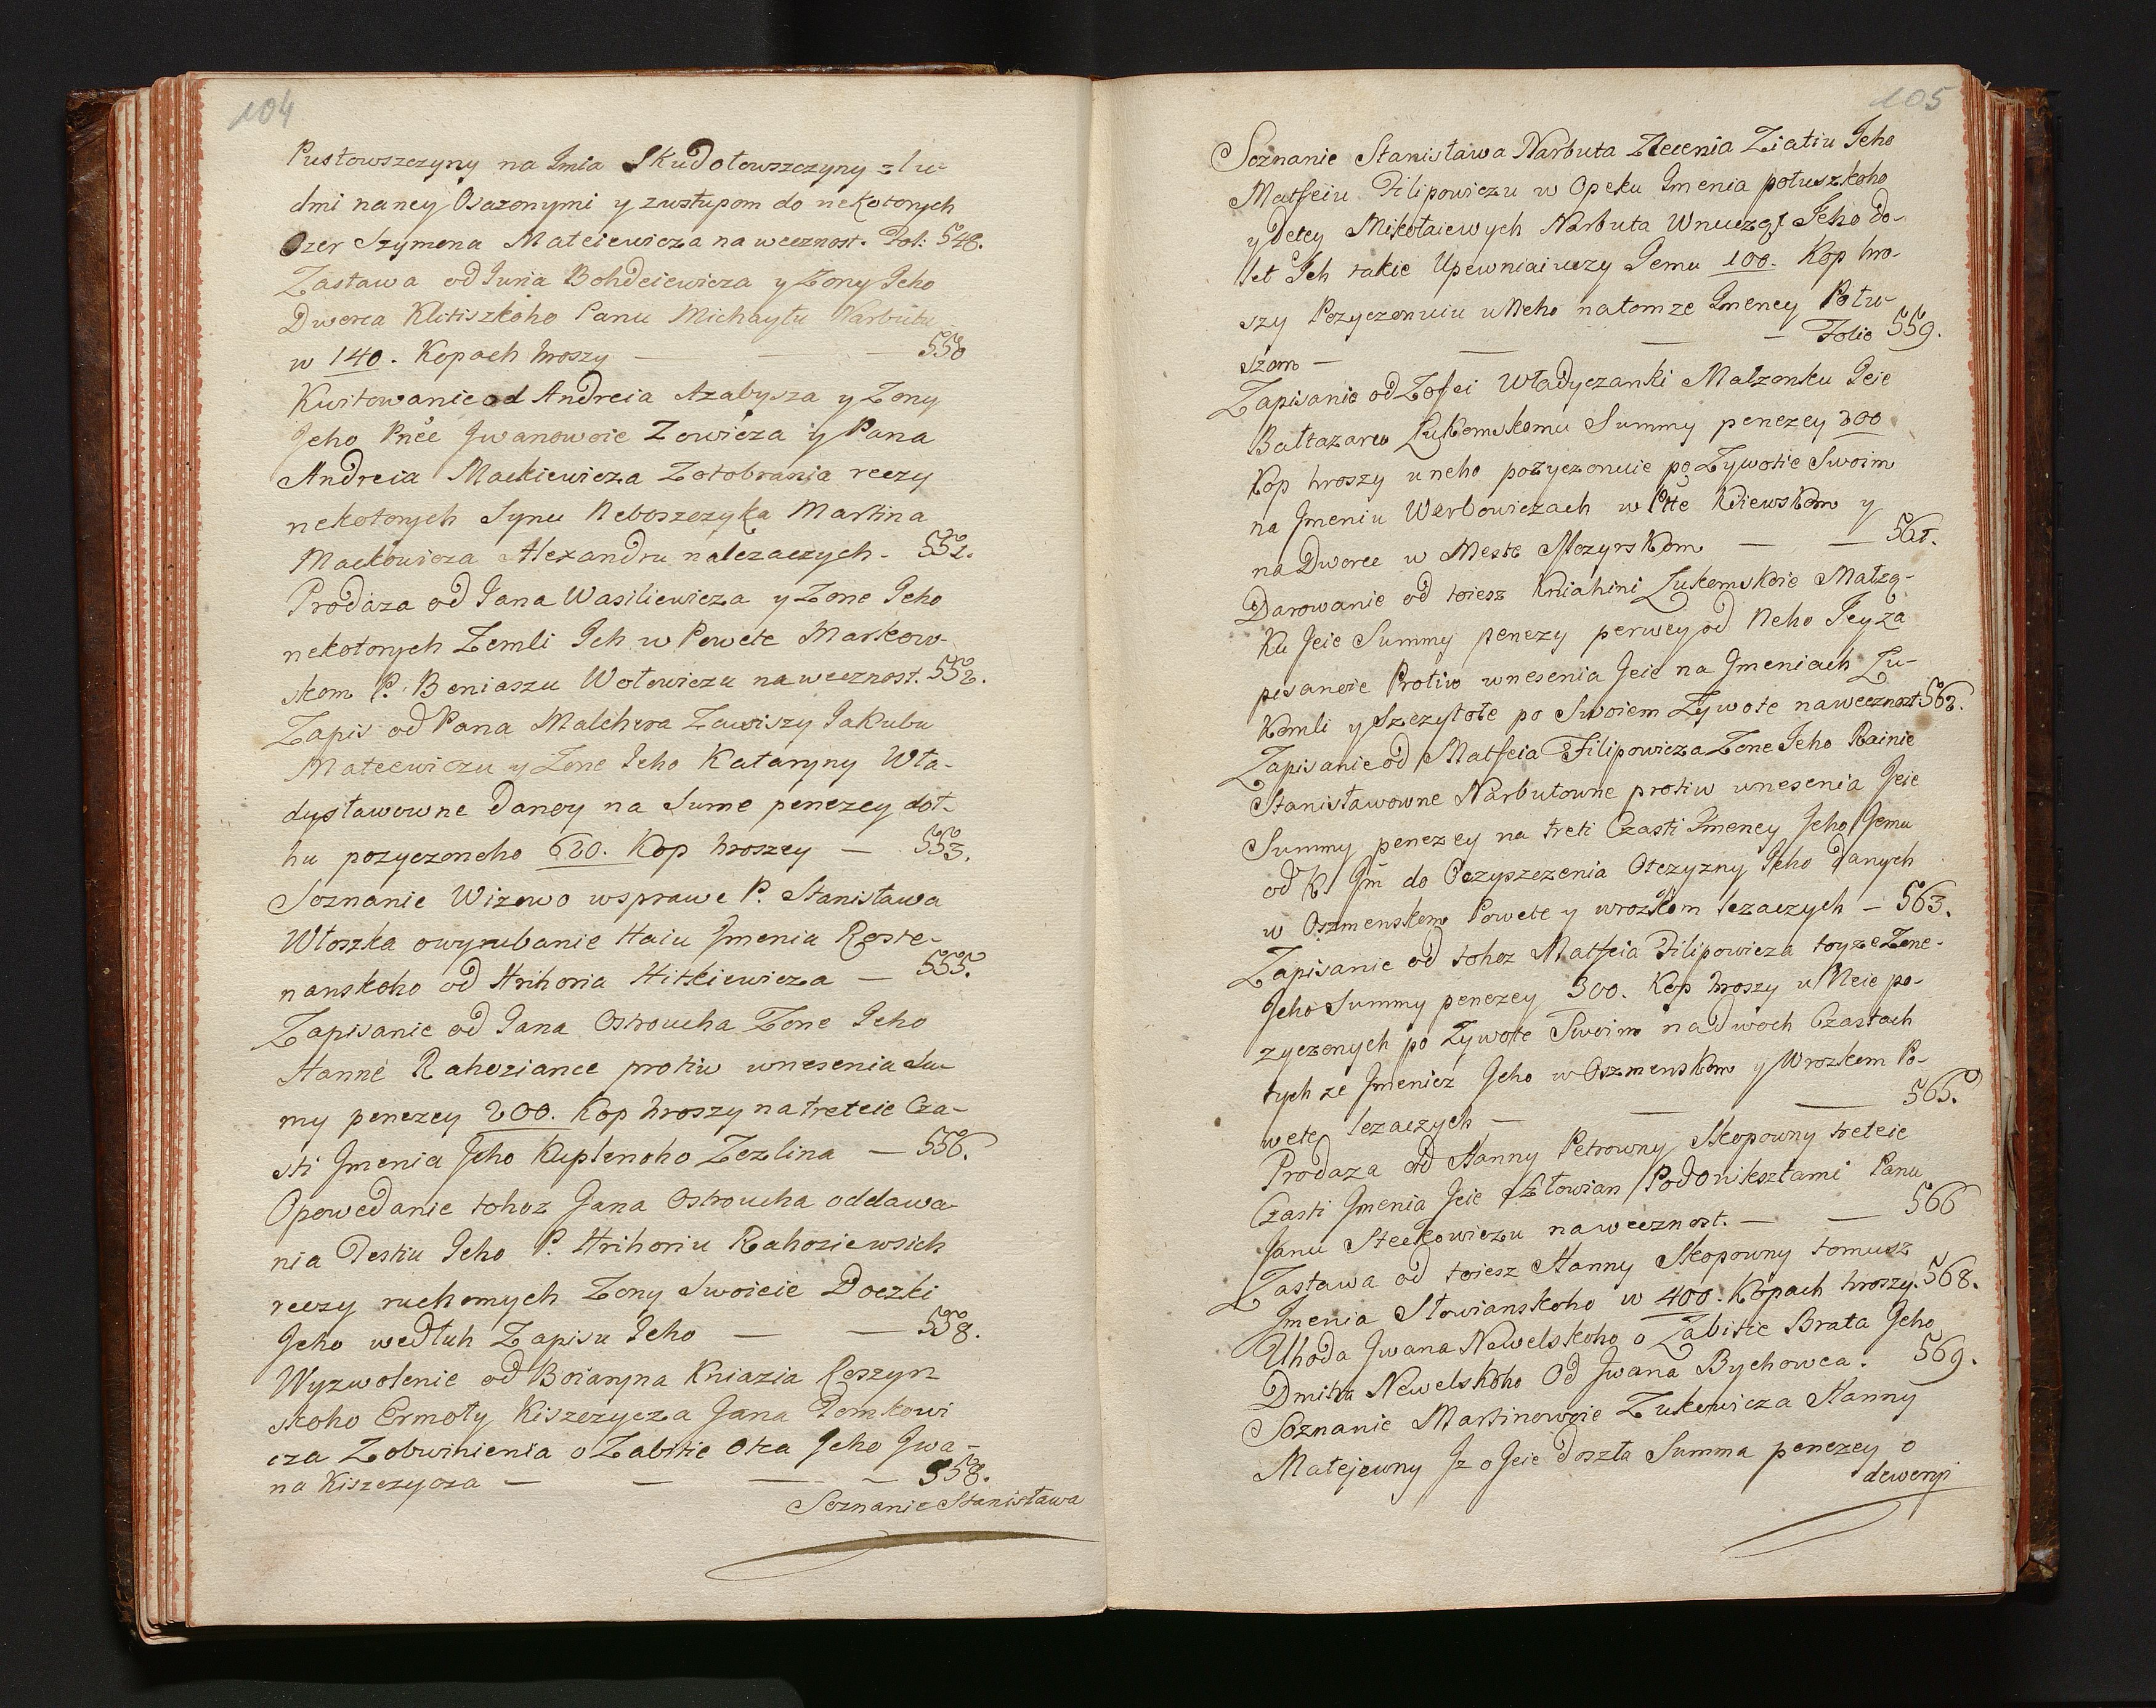 104
Pustowszczyny na Imia Skudotowszczyny z lu-
dmi na ney Osazonymi y zwstupom do nekotorych
Ozer Szymona Mateiewicza na wecznost. Fol: 548.
Zastawa od Juria Bohdeiewicza y Zony Jeho
Dworca Kletiszkoho Panu Michaytu Narbutu
w 140. Kopach hroszy — — — 550
Kwitowanie od Andreia Azabysza y Zony
Jeho Pnee Jwanowoie Zowicza y Pana
Andreia Mackiewicza Zotobrania reczy
nekotorych Synu Neboszczyka Martina
Mackowicza Alexandru nalezaczych - 551.
Prodaza od Jana Wasiliewicza y Zone Jeho
nekotorych Zemli Jch w Powete Markow-
skom P. Beniaszu Wotowiczu na wecznost. 552.
Zapis od Pana Malchera Zawiszy Jakubu
Mateewiczu y Zone Jeho Kataryny Wła-
dysławowne Danoy na Sume penezey dot-
hu pozyczoneho 620. Kop hroszey — 553.
Soznanie Wizowo wsprawe P. Stanisława
Włoszka owyrubanie Haiu Jmenia Roste-
nanskoho od Hrihoria Hitkiewicza — 555.
Zapisanie od Jana Ostroucha Zone Jeho
Hanne Rahoziance protiw wnesenia Su-
my penezey 200. Kop hroszy na treteie Cza-
sti Jmenia Jeho Kuplenoho Zezlina — 556.
Opowedanie tohoz Jana Ostroucha oddawa-
nia Testiu Jeho P. Hrihoriu Rahoziewsich
reczy ruchomych Zony Swoieie Doczki
Jeho wedłuh Zapisu Jeho — — 558.
Wyzwolenie od Boiaryna Kniazia Leszyn
skoho Ermoły Kiszczycza Jana Tomkowi
cza Zobwinienia o Zabitie Otca Jeho Jwa-
na Kiszczycza — — — — 558.
Soznanie Stanisława
105
Soznanie Stanisława Narbuta Zlecenia Ziatiu Jeho
Matfeiu Filipowiczu w Opeku Jmenia potuszkoho
y Detey Mikołaiewych Narbuta Wnuczat Jeho do-
let Jch takie Upewniaiuczy Jemu 100. Kop hro-
szy Pozyczonuiu u Neho natomze Jmeney Potu-
szom — — — — Folio 559.
Zapisanie od Zofei Władyczanki Małzonku Jeie
Bałtazaru Łukomskomu Summy penezey 300
Kop hroszy u neho pozyczonuie po Zywotie Swoim
na Jmeniu Werbowiczach w Ptte Kiiewskom y
na Dworce w Meste Mozyrskom — — 561.
Darowanie od toiesz Kniahini Łukomskoie Małzo-
ku Jeie Summy penezy perwey od Neho Jey za
pisanoie Protiw wnesenia Jeie na Jmeniach Łu-
komli y Szczytote po Swoiem Zywote na wecznost: 562.
Zapisanie od Matfeia Filipowicza Zone Jeho Rainie
Stanisławowne Narbutowne protiw wnesenia Jeie
Summy penezey na treti Czasti Jmeney Jeho Jemu
od K. Jm do Oczyszczenia Otczyzny Jeho danych
w Oszmenskom Powete y wrozkom lezaczych — 563.
Zapisanie od tohoz Matfeia Filipowicza toyze Zone-
Jeho Summy penezey 300. Kop hroszy u Neie po-
zyczonych po Zywote Swoim na Dwoch Czastach
tych ze Jmeniez Jeho w Oszmenskom y Wrozkom Po-
wete lezaczych — — — 565.
Prodaza od Hanny Petrowny Skopowny treteie
Czasti Jmenia Jeie Słowian Podonikształami Panu
Janu Steckowiczu na wecznost. — — 566
Zastawa od toiesz Hanny Skopowny tomusz
Jmenia Słowianskoho w 400. Kopach hroszy. 568.
Uhoda Jwana Newelskoho o Zabitie Brata Jeho
Dmitra Newelskoho Od Jwana Bychowca. 569.
Soznanie Martinowoie Zukowicza Hanny
Matejewny Jz o Jeie doszła Summa penezey o
deweryi